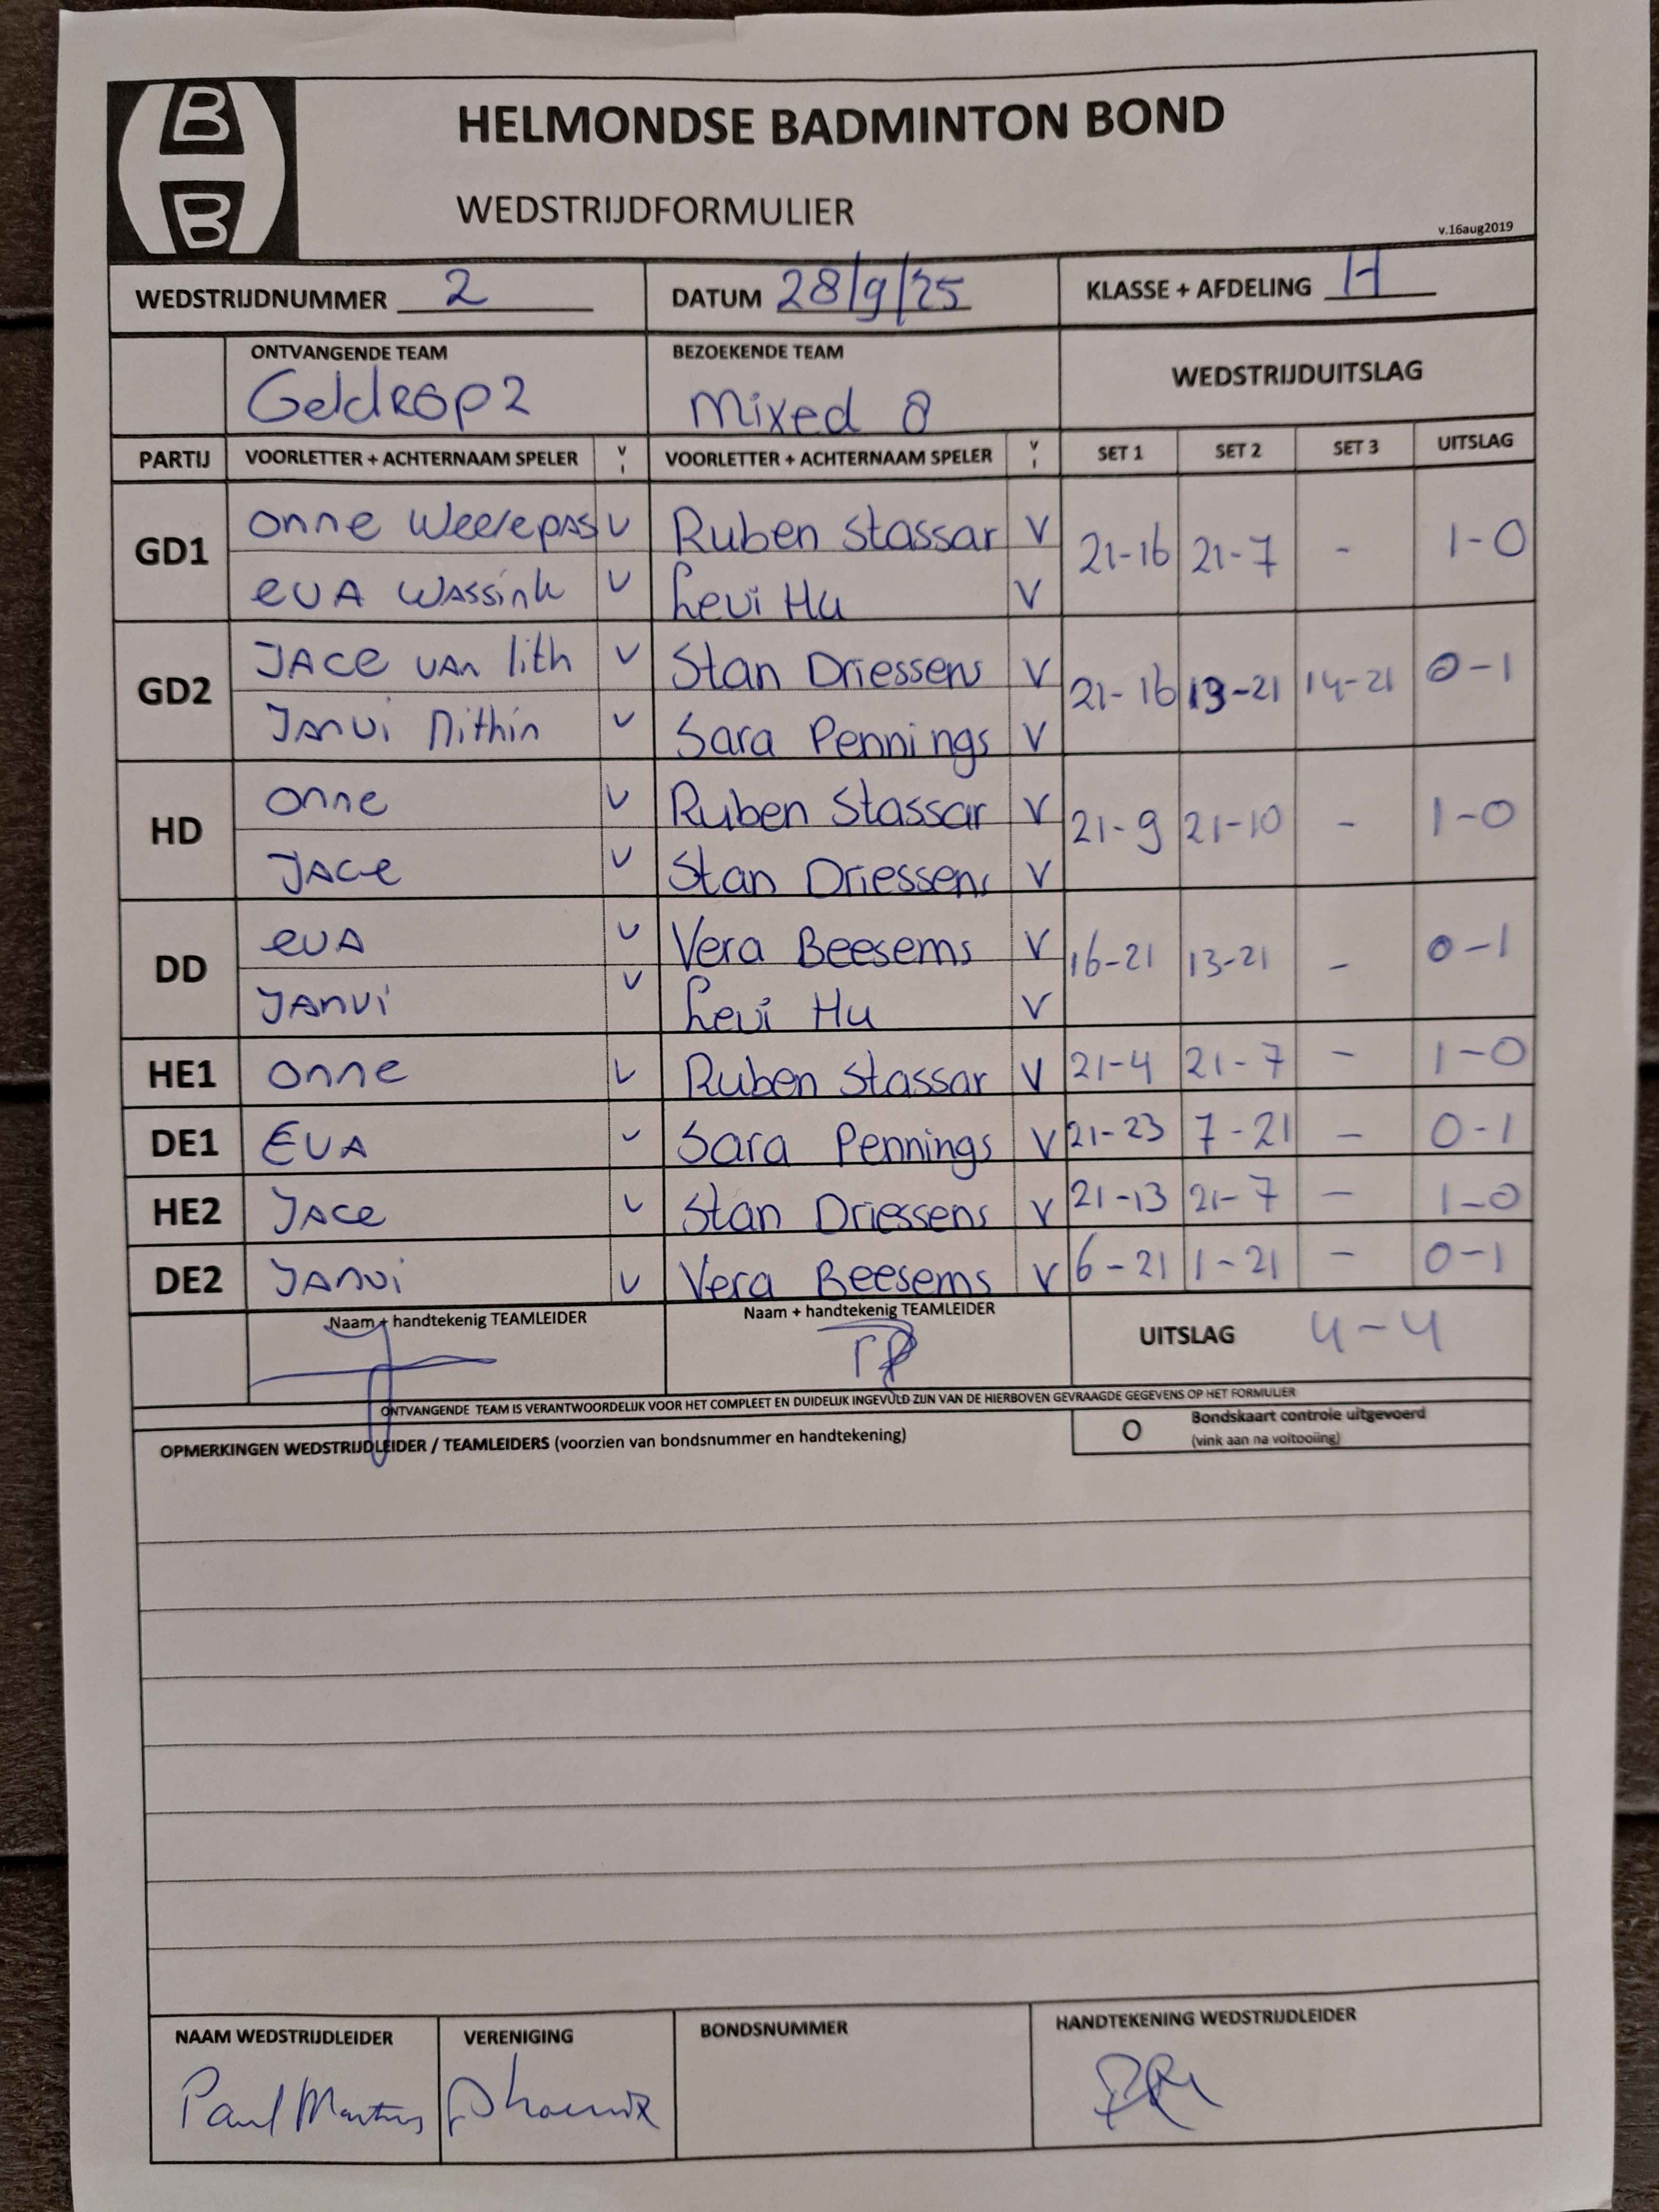 HELMONDSE BADMINTON BOND
WEDSTRIJDFORMULIER
v.16aug2019
WEDSTRIJDNUMMER 2 DATUM 28/9/25 KLASSE + AFDELING H
ONTVANGENDE TEAM BEZOEKENDE TEAM WEDSTRIJDUITSLAG
Geldrop 2 Mixed 8
PARTIJ VOORLETTER + ACHTERNAAM SPELER V VOORLETTER + ACHTERNAAM SPELER V SET 1 SET 2 SET 3 UITSLAG
GD1 Onne V Ruben Stassar V 21-16 21-7 - 1-0
EVA Wassink V Levi Hu V
GD2 JACe VAN lith V Stan Driessens V 21-16 13-21 14-21 0-1
JAnvi Nithin V Sara Pennings V
HD Onne V Ruben Stassar V 21-9 21-10 - 1-0
JACe V Stan Driessens V
DD eVA V Vera Beesems V 16-21 13-21 - 0-1
JAnvi V Levi Hu V
HE1 Onne V Ruben Stassar V 21-4 21-7 - 1-0
DE1 EVA V Sara Pennings V 21-23 7-21 - 0-1
HE2 JACe V Stan Driessens V 21-13 21-7 - 1-0
DE2 JANvi V Vera Beesems V 6-21 1-21 - 0-1
Naam + handtekenig TEAMLEIDER Naam + handtekenig TEAMLEIDER UITSLAG 4-4
ONTVANGENDE TEAM IS VERANTWOORDELIJK VOOR HET COMPLEET EN DUIDELIJK INGEVULD ZIJN VAN DE HIERBOVEN GEVRAAGDE GEGEVENS OP HET FORMULIER
OPMERKINGEN WEDSTRIJDLEIDER / TEAMLEIDERS (voorzien van bondsnummer en handtekening) O Bondskaart controle uitgevoerd
(vink aan na voltooiing)
NAAM WEDSTRIJDLEIDER VERENIGING BONDSNUMMER HANDTEKENING WEDSTRIJDLEIDER
Paul Phoenix